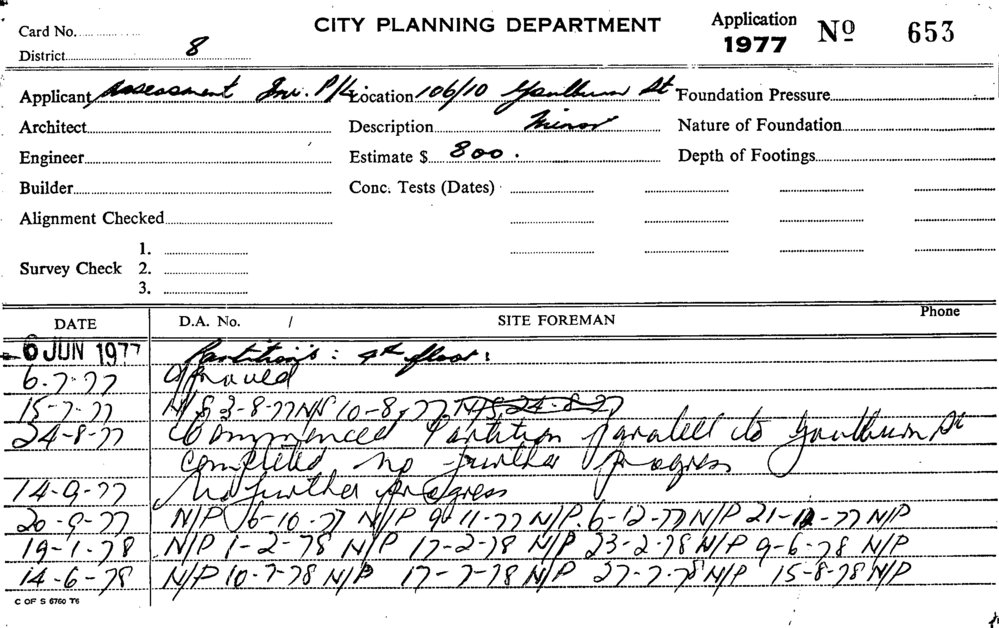 Card No.
CITY PLANNING DEPARTMENT
Application 1977 Nº 653
District 8
Applicant Assessment Inv. P/L Location 106/10 Goulburn St Foundation Pressure
Architect Description Minor Nature of Foundation
Engineer Estimate $ 800. Depth of Footings
Builder Conc. Tests (Dates)
Alignment Checked
1.
Survey Check 2.
3.
DATE D.A. No. / SITE FOREMAN Phone
- 6 JUN 1977 Partitions: 4th floor:
6-7-77 Approved
15-7-77 N/S 3-8-77 N/S 10-8-77 N/S 24-8-77
24-8-77 Commenced Partition paralell to Goulburn St
completed no further progress
14-9-77 No further progress
20-9-77 N/P 6-10-77 N/P 9-11-77 N/P. 6-12-77 N/P 21-12-77 N/P
19-1-78 N/P 1-2-78 N/P 17-2-78 N/P 23-2-78 N/P 9-6-78 N/P
14-6-78 N/P 10-7-78 N/P 17-7-78 N/P 27-7-78 N/P 15-8-78 N/P
C OF S 6760 T6